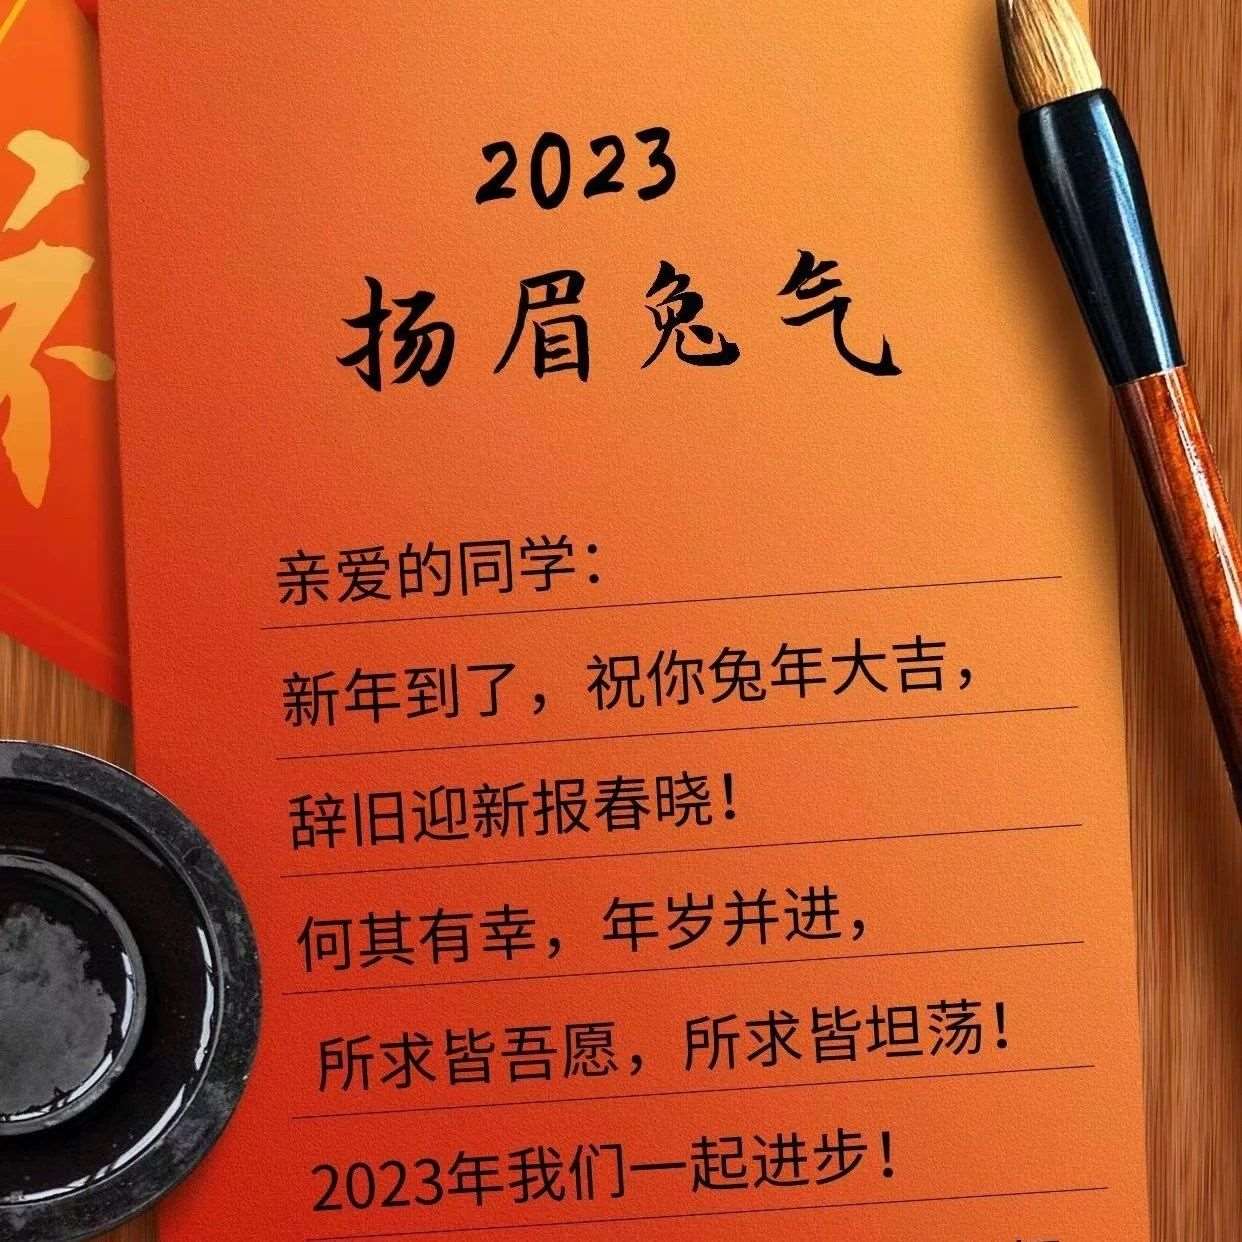 2023
扬眉兔气
亲爱的同学：
新年到了，祝你兔年大吉，
辞旧迎新报春晓！
何其有幸，年岁并进，
所求皆吾愿，所求皆坦荡！
2023年我们一起进步！